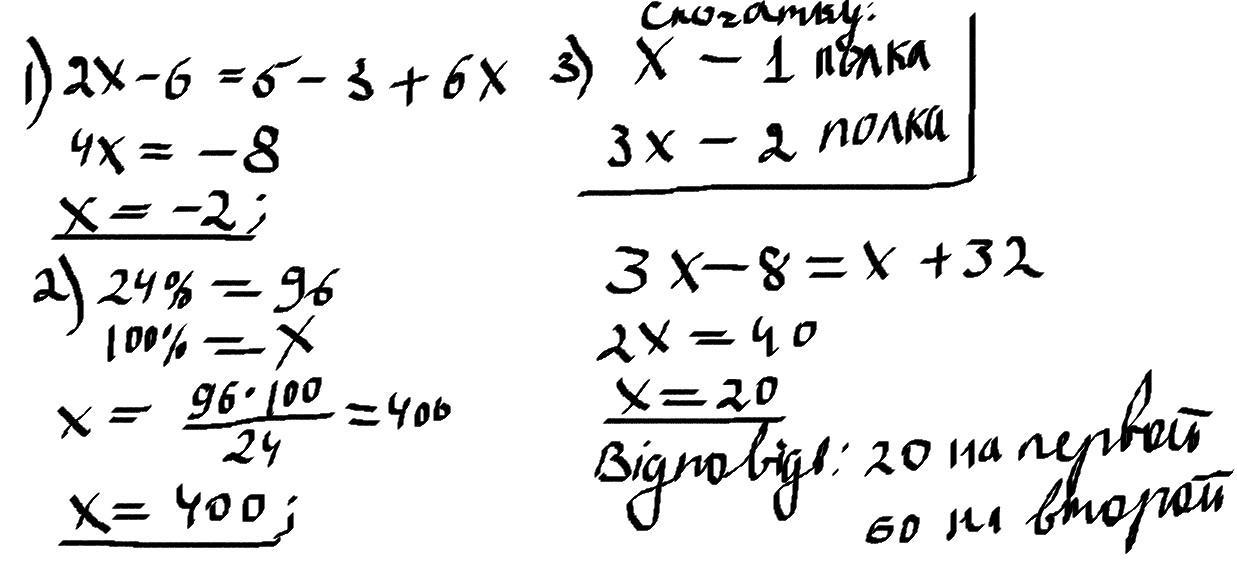 1) 2x - 6 = 5 - 3 + 6x
4x = -8
x = -2;
2) 24% = 96
100% = x
x = 96·100/24 = 400
x = 400;
Спочатку:
3) x - 1 полка
3x - 2 полка
3x - 8 = x + 32
2x = 40
x = 20
Відповідь: 20 на первой
60 на второй